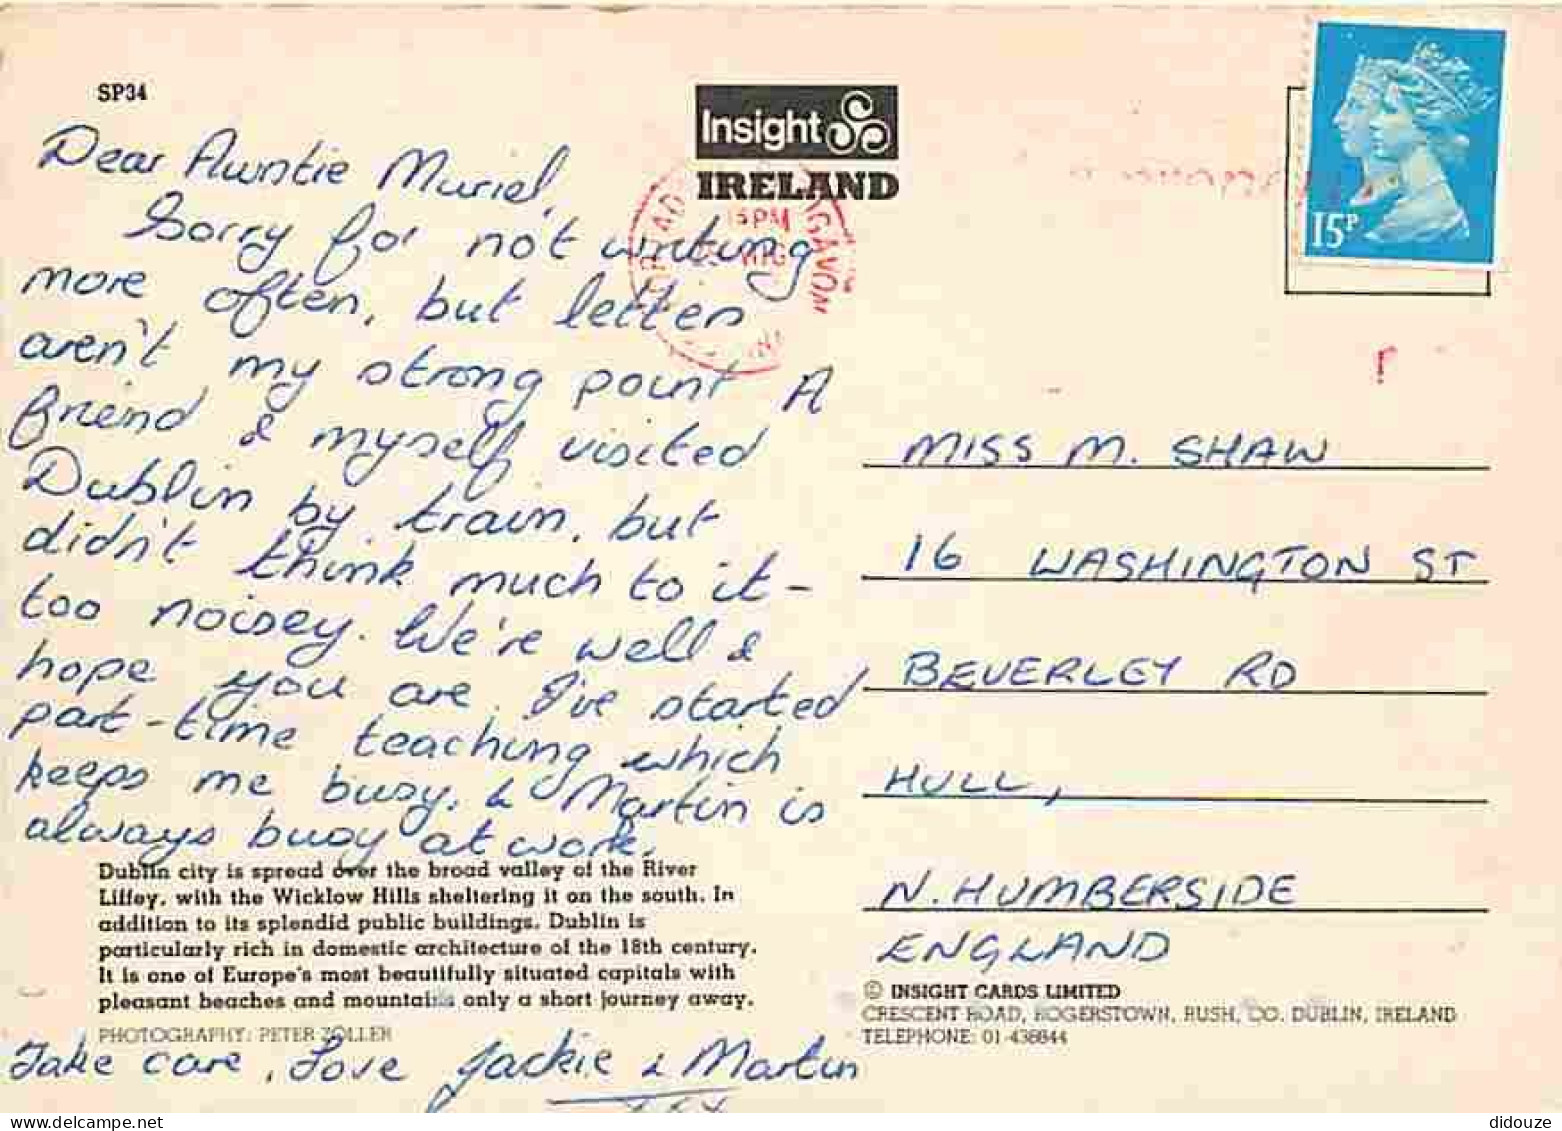 SP34
Insight
IRELAND
15P
Dear Auntie Muriel,
Sorry for not writing
more often, but letters
aren't my strong point A
friend & myself visited
Dublin by train, but
didn't think much to it -
too noisey. We're well &
hope you are. I've started
part-time teaching which
keeps me busy, & Martin is
always busy at work.
Dublin city is spread over the broad valley of the River
Liffey, with the Wicklow Hills sheltering it on the south. In
addition to its splendid public buildings, Dublin is
particularly rich in domestic architecture of the 18th century.
It is one of Europe's most beautifully situated capitals with
pleasant beaches and mountains only a short journey away.
PHOTOGRAPHY: PETER ZOLLER
Take care, Love Jackie & Martin
MISS M. SHAW
16 WASHINGTON ST
BEVERLEY RD
HULL,
N. HUMBERSIDE
ENGLAND
© INSIGHT CARDS LIMITED
CRESCENT ROAD, ROGERSTOWN, RUSH, CO. DUBLIN, IRELAND
TELEPHONE: 01-438844
didouze